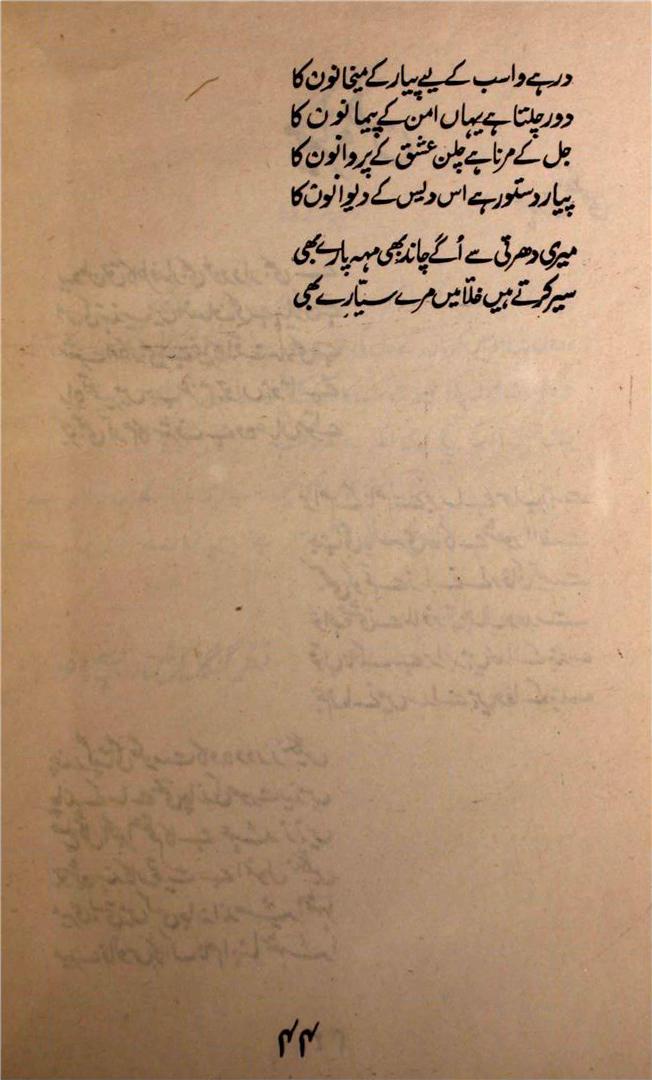 در ہے وا سب کے لیے پیار کے میخانون کا
دور چلتا ہے یہاں امن کے پیمانون کا
جل کے مرنا ہے چلن عشق کے پروانون کا
پیار دستور ہے اس دیس کے دیوانون کا
میری دھرتی سے اُگے چاند بھی مہہ پارے بھی
سیر کرتے ہیں خلا میں مرے سیّارے بھی